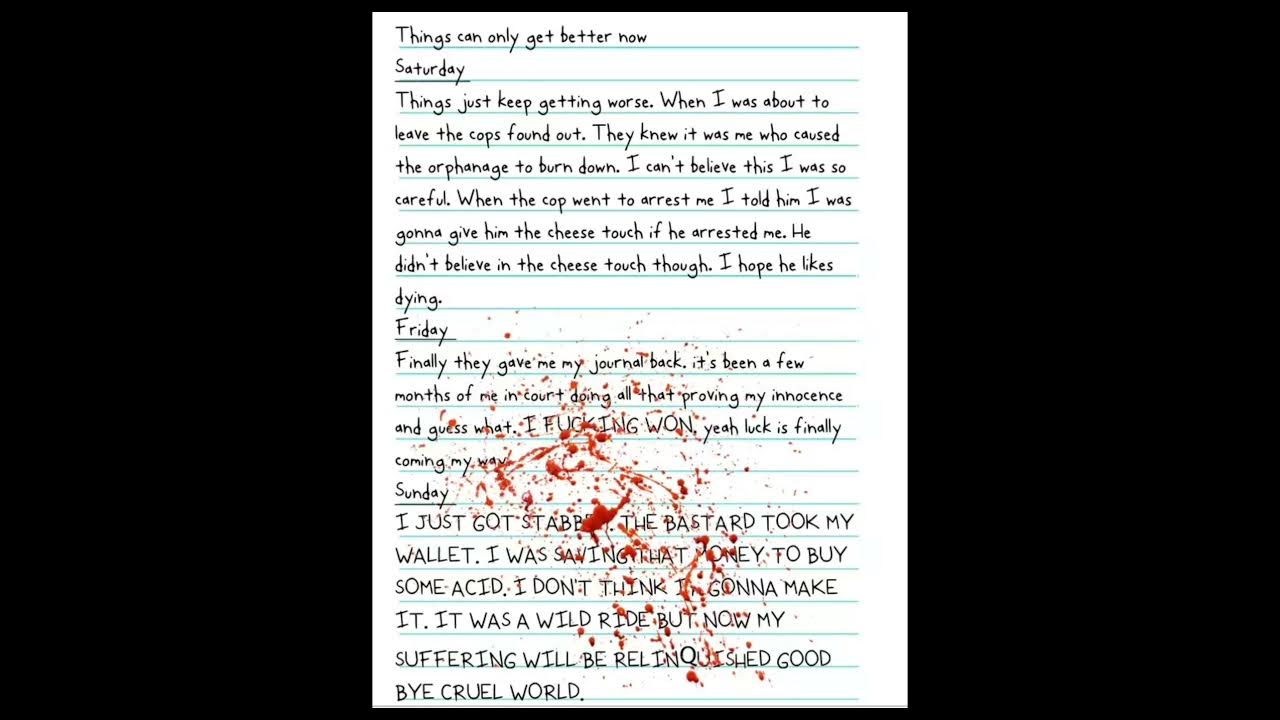 Things can only get better now
Saturday
Things just keep getting worse. When I was about to
leave the cops found out. They knew it was me who caused
the orphanage to burn down. I can't believe this I was so
careful. When the cop went to arrest me I told him I was
gonna give him the cheese touch if he arrested me. He
didn't believe in the cheese touch though. I hope he likes
dying.
Friday
Finally they gave me my journal back. it's been a few
months of me in court doing all that proving my innocence
and guess what. I FUCKING WON. yeah luck is finally
coming my way
Sunday
I JUST GOT STABBED. THE BASTARD TOOK MY
WALLET. I WAS SAVING THAT MONEY TO BUY
SOME ACID. I DON'T THINK GONNA MAKE
IT. IT WAS A WILD RIDE BUT NOW MY
SUFFERING WILL BE RELINQUISHED GOOD
BYE CRUEL WORLD.